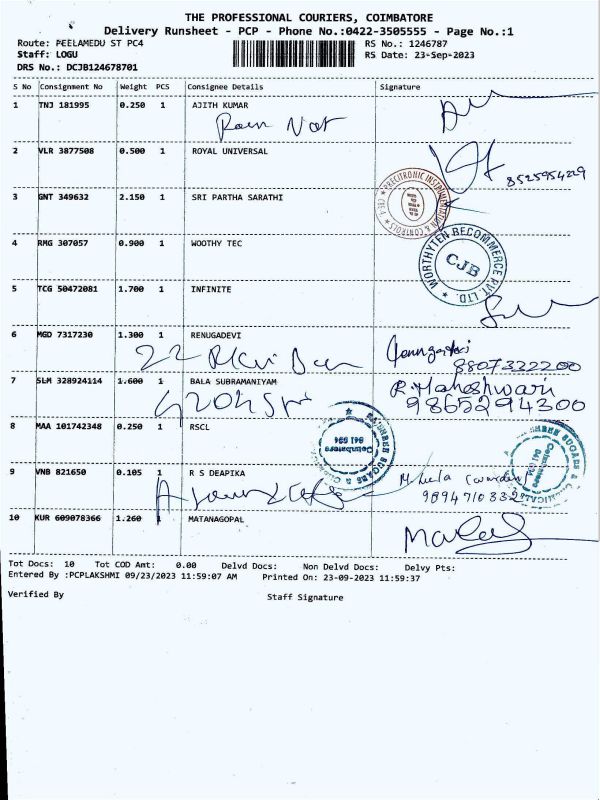 THE PROFESSIONAL COURIERS, COIMBATORE
Delivery Runsheet - PCP - Phone No.:0422-3505555 - Page No.:1
Route: PEELAMEDU ST PC4 RS No.: 1246787
Staff: LOGU RS Date: 23-Sep-2023
DRS No.: DCJB124678701
S No Consignment No Weight PCS Consignee Details Signature
1 TNJ 181995 0.250 1 AJITH KUMAR
2 VLR 3877508 0.500 1 ROYAL UNIVERSAL
8525954229
PRECITRONIC INSTRUMENTATION & CONTROLS
3 GNT 349632 2.150 1 SRI PARTHA SARATHI
4 RMG 307057 0.900 1 WOOTHY TEC
WORTHYTEN RECOMMERCE PVT. LTD. ★
CJB
5 TCG 50472081 1.700 1 INFINITE
6 MGD 7317230 1.300 1 RENUGADEVI
8807322200
7 SLM 328924114 1.600 1 BALA SUBRAMANIYAM R.Maheshwari
9865294300
8 MAA 101742348 0.250 1 RSCL
Coimbatore
641 034
9 VNB 821650 0.105 1 R S DEAPIKA
9894710332
10 KUR 609078366 1.260 1 MATANAGOPAL
Tot Docs: 10 Tot COD Amt: 0.00 Delvd Docs: Non Delvd Docs: Delvy Pts:
Entered By :PCPLAKSHMI 09/23/2023 11:59:07 AM Printed On: 23-09-2023 11:59:37
Verified By Staff Signature